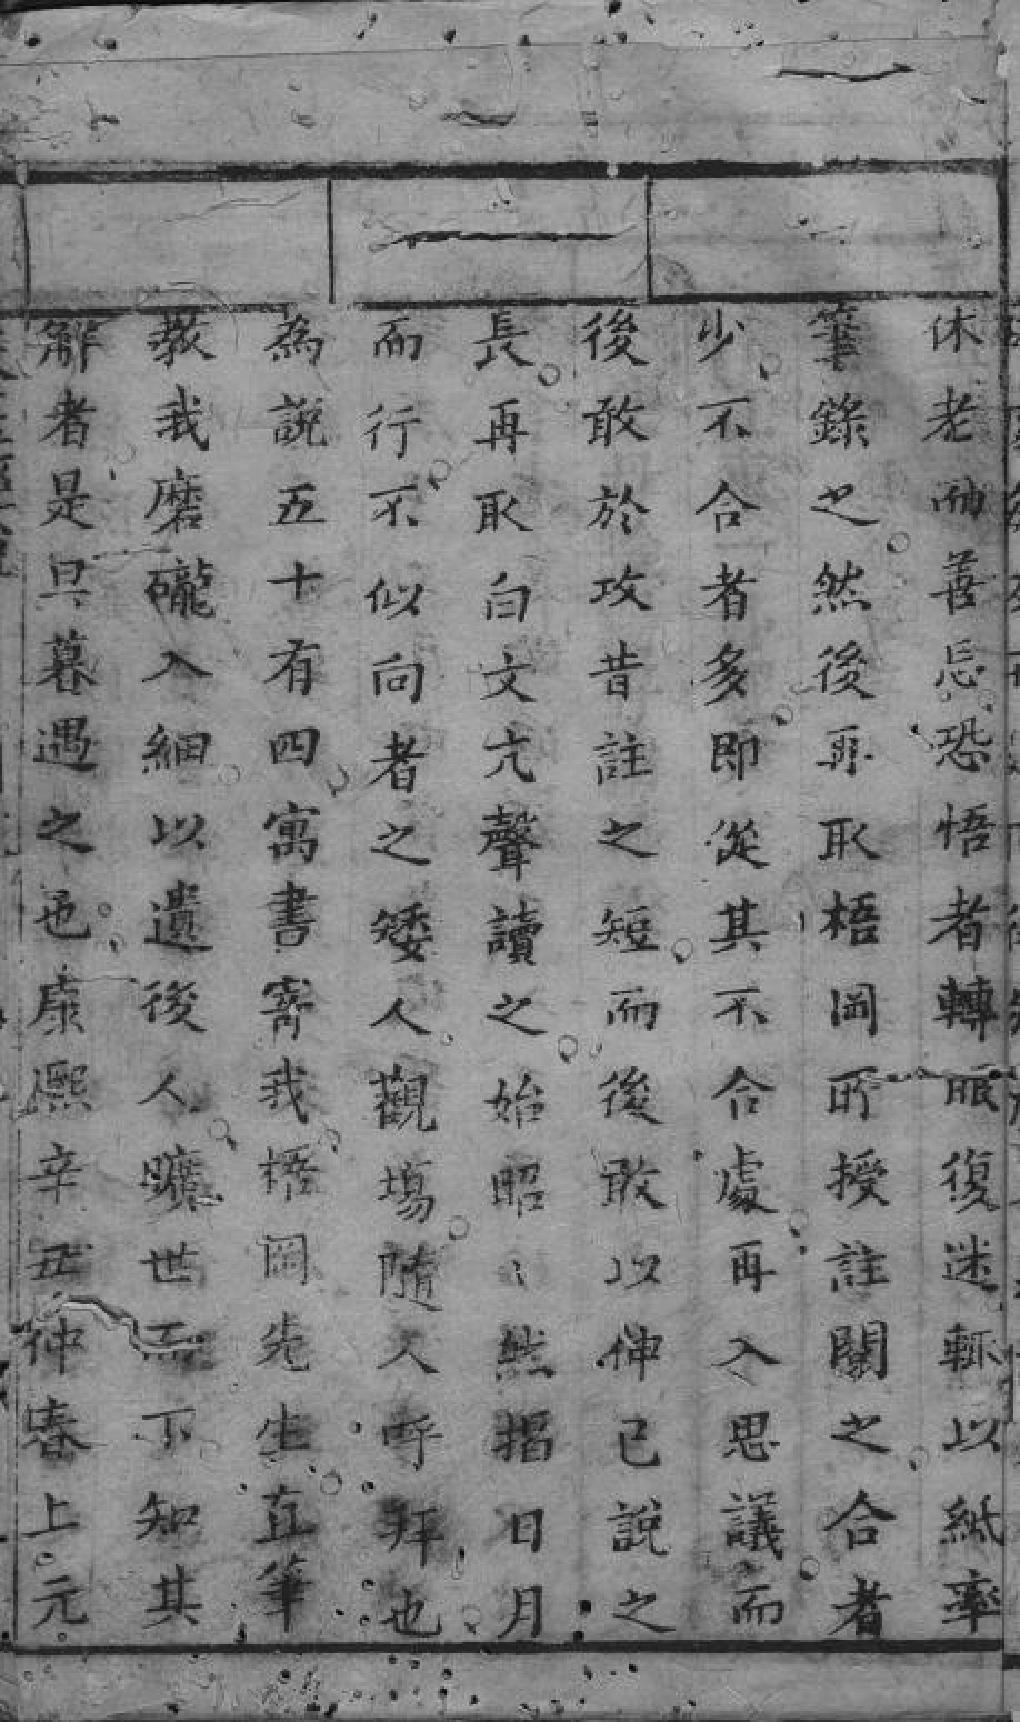 休老而善忘恐悟者轉眼復迷輒以紙率
筆錄之然後再取梧岡所授註關之合者
少不合者多即從其不合處再入思議而
後敢於攻昔註之短而後敢以伸己說之
長再取白文亢聲讀之始昭〻然揭日月
而行不似向者之矮人觀場隨人呼拜也
為說五十有四寓書寄我梧岡先生直筆
教我磨礲入細以遺後人曠世而下知其
解者是旦暮遇之也康熙辛丑仲春上元